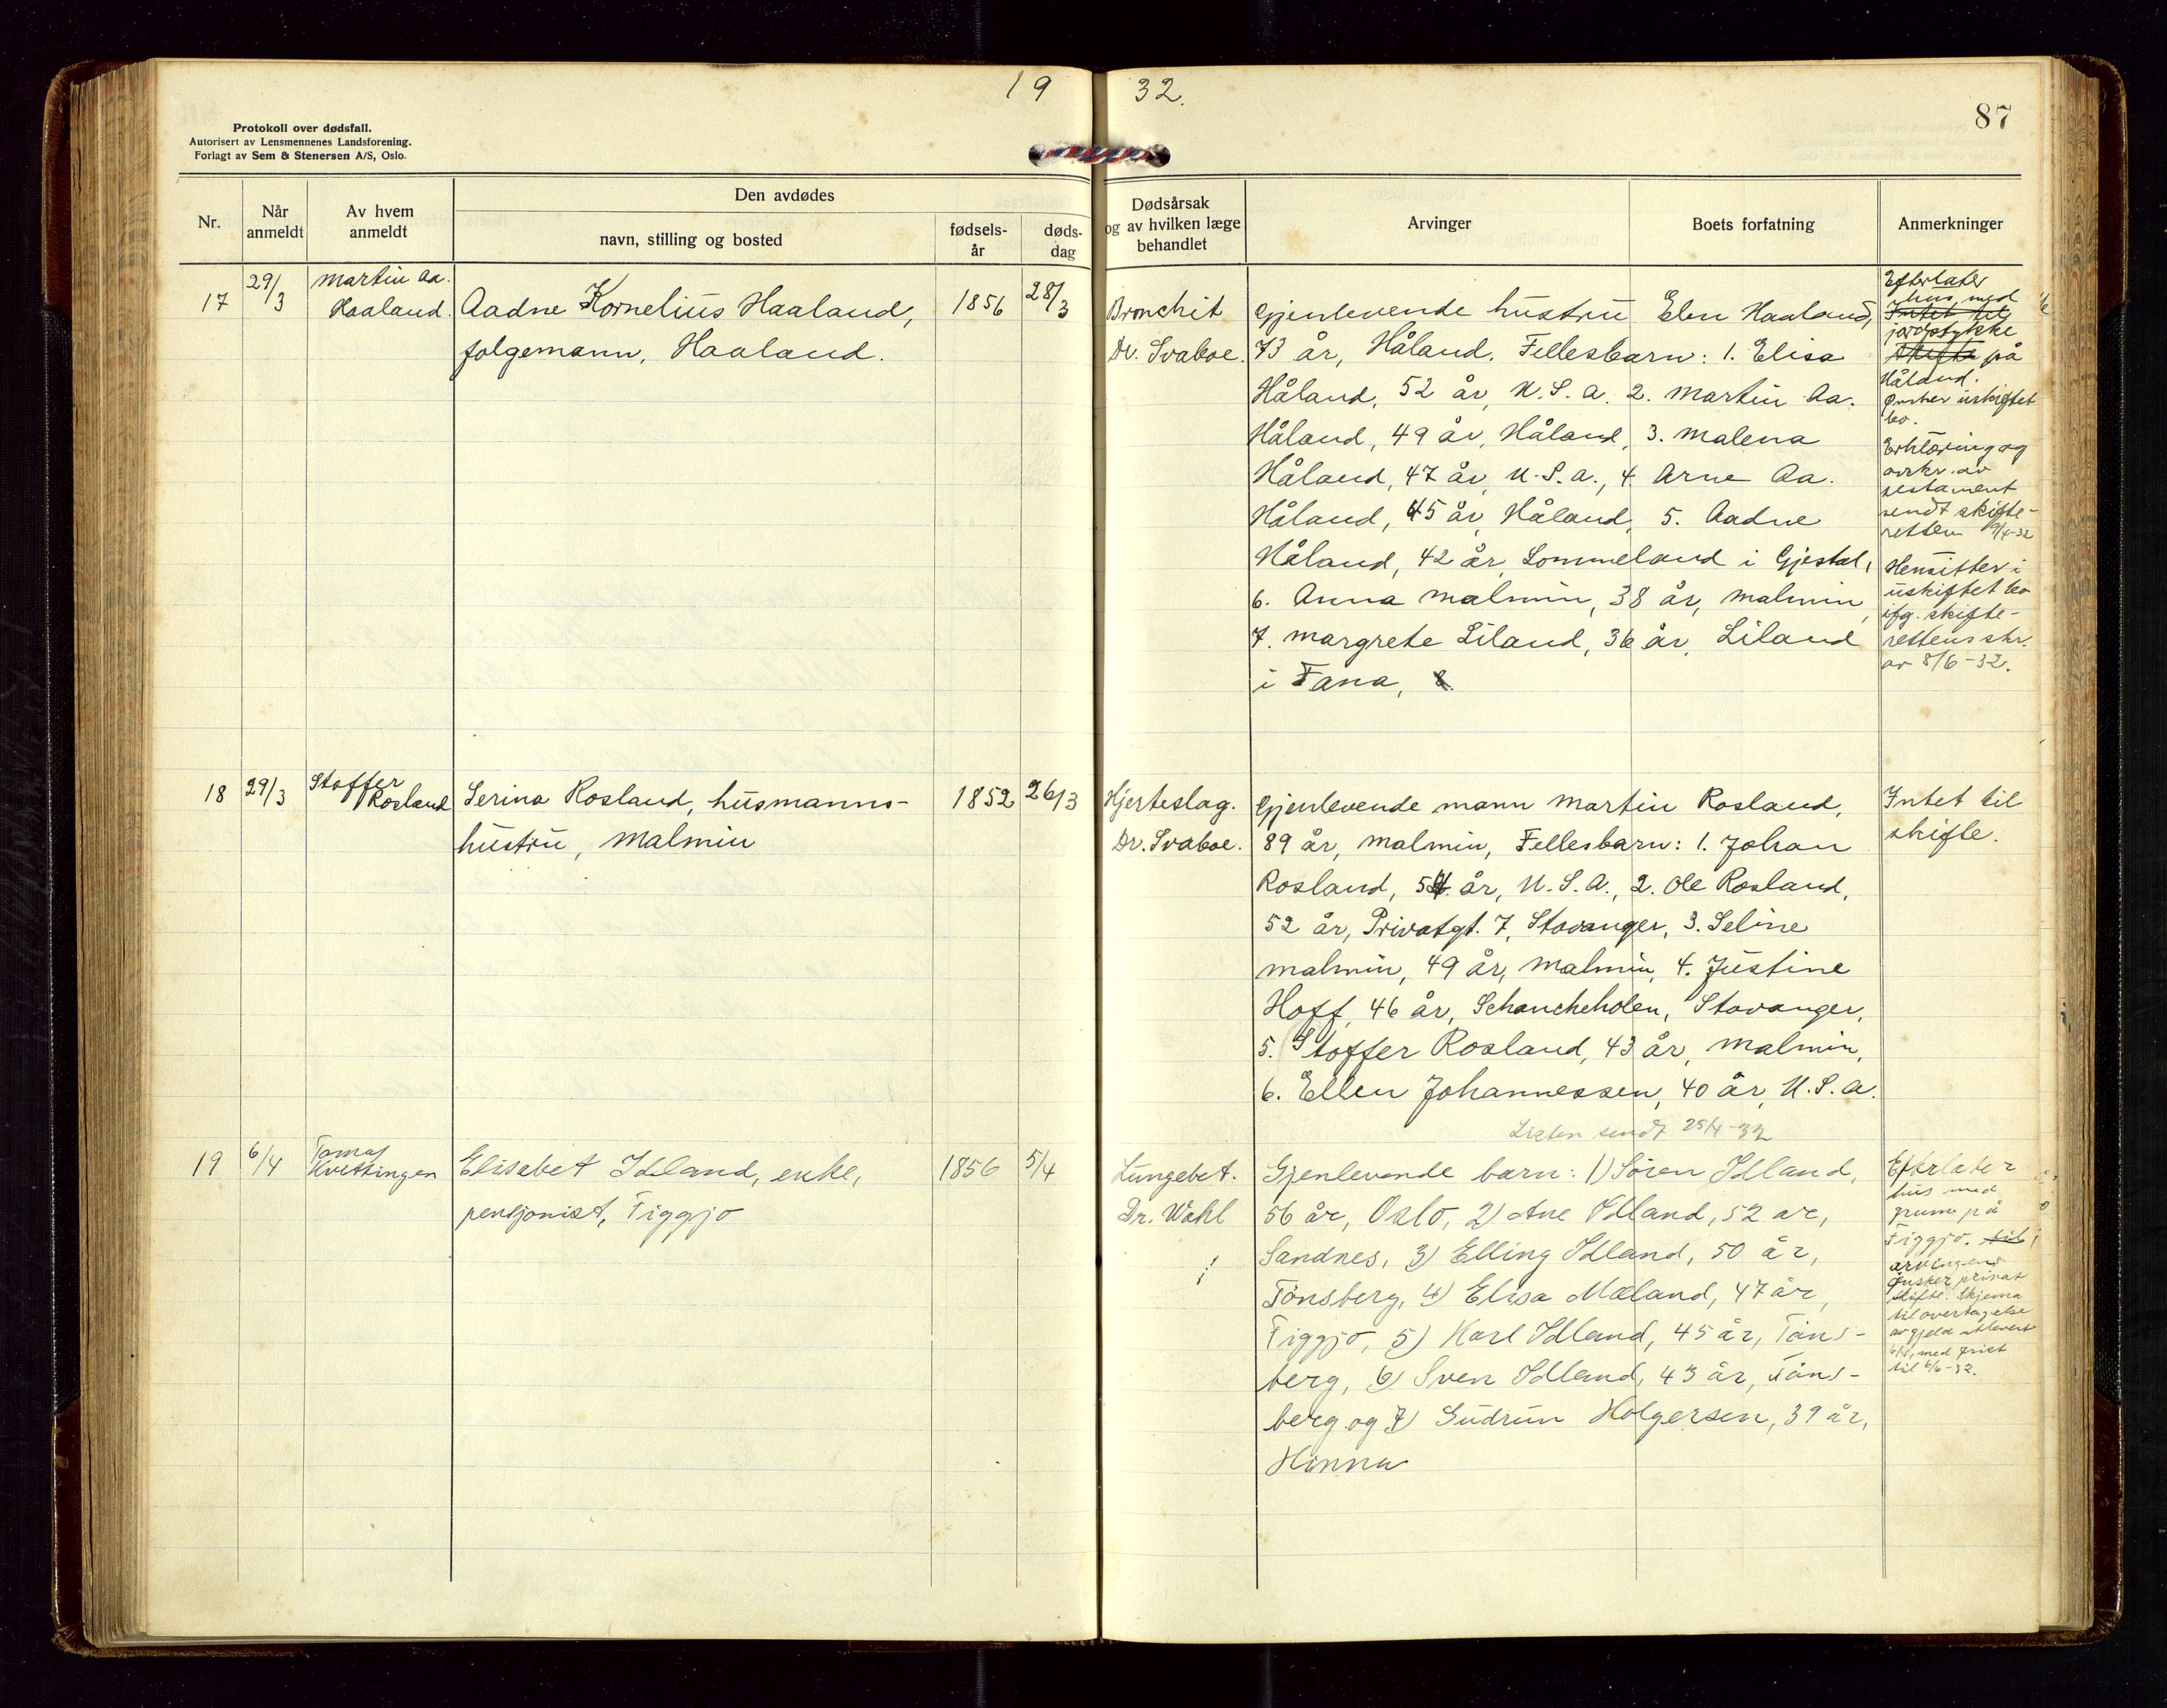 19 32.
87
Protokoll over dødsfall.
Autorisert av Lensmennenes Landsforening.
Forlagt av Sem & Stenersen A/S, Oslo.
Nr.
Når anmeldt
Av hvem anmeldt
Den avdødes
navn, stilling og bosted
fødsels-år
døds-dag
Dødsårsak og av hvilken læge behandlet
Arvinger
Boets forfatning
Anmerkninger
17
29/3
Martin Aa.
Haaland.
Aadne Kornelius Haaland,
folgemann, Haaland.
1856
28/3
Bronchit
Dr. Svaboe.
Gjenlevende hustru Elen Haaland,
73 år, Håland. Fellesbarn: 1. Elisa
Håland, 52 år, U.S.A. 2. Martin Aa.
Håland, 49 år, Håland, 3. Malena
Håland, 47 år, U.S.A., 4. Arne Aa.
Håland, 45 år, Håland, 5. Aadne
Håland, 42 år, Sommeland i Gjestal,
6. Anna Malmin, 38 år, Malmin,
7. Margrete Liland, 36 år, Liland
i Fana, 8.
Efterlater
hus med
Intet til
jordstykke
skifte på
Håland.
Ønsker uskiftet
bo.
Erklæring og
avskr. av
testament
sendt skifte-
retten 9/4-32
Hensitter i
uskiftet bo
ifg. skifte-
rettens skr.
av 8/6-32.
18
29/3
Stoffer
Rosland
Serina Rosland, husmanns-
hustru, Malmin
1852
26/3
Hjerteslag.
Dr. Svaboe.
Gjenlevende mann Martin Rosland,
89 år, Malmin, Fellesbarn: 1. Johan
Rosland, 54 år, U.S.A., 2. Ole Rosland,
52 år, Privatgt. 7, Stavanger, 3. Seline
Malmin, 49 år, Malmin, 4. Justine
Hoff, 46 år, Schancheholen, Stavanger,
5. Stoffer Rosland, 43 år, Malmin,
6. Ellen Johannessen, 40 år, U.S.A.
Listen sendt 25/4-32
Intet til
skifte.
19
6/4
Tomas
Kvettingen
Elisabet Idland, enke,
pensjonist, Figgjo
1856
5/4
Lungebet.
Dr. Wahl
Gjenlevende barn: 1) Søren Idland,
56 år, Oslo, 2) Ane Idland, 52 år,
Sandnes, 3) Elling Idland, 50 år,
Tönsberg, 4) Elisa Mæland, 47 år,
Figgjo, 5) Karl Idland, 45 år, Töns-
berg, 6) Sven Idland, 43 år, Töns-
berg og 7) Gudrun Holgersen, 39 år,
Hinna
Efterlater
hus med
grunn på
Figgjo.
arvingene
ønsker privat
skifte. Skjema
til overtagelse
av gjeld utlevert
med frist
til 6/6-32.